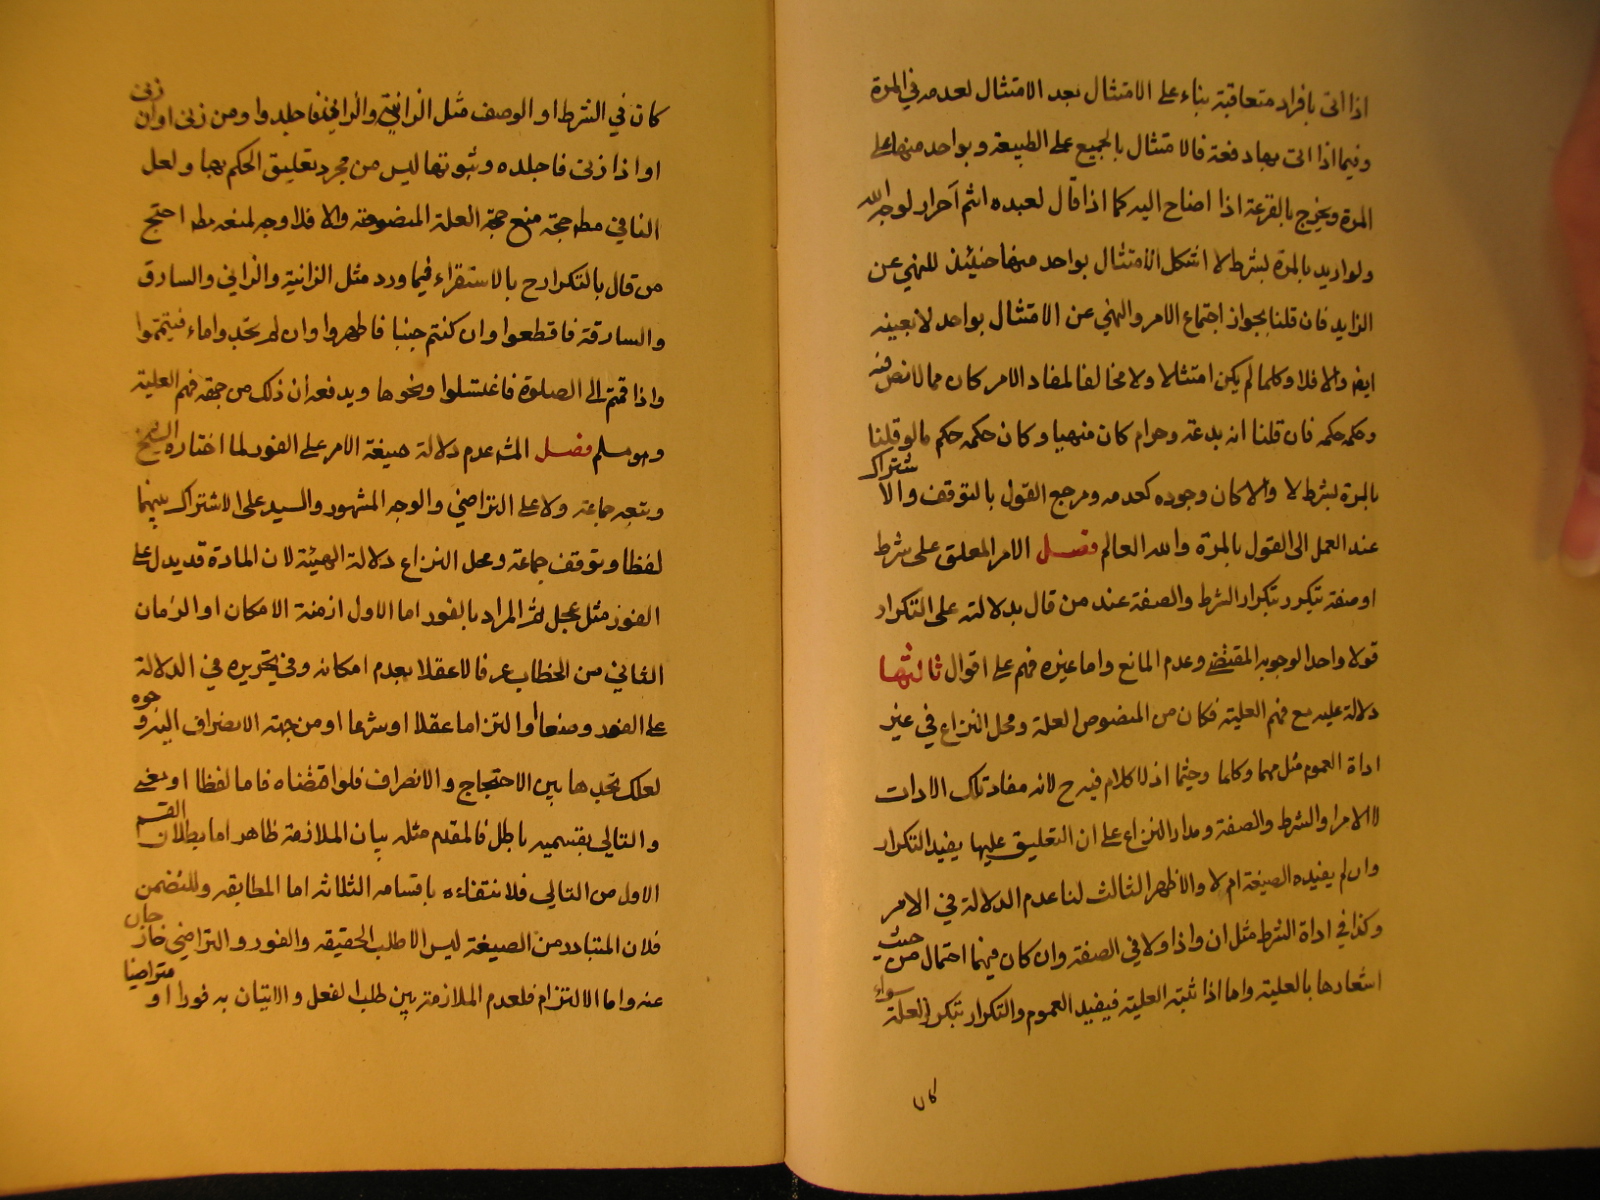 اذا اتى بافراد متعاقبة بناء على الامتثال بعد الامتثال لعدمه في المرة
وفيما اذا اتى بها دفعة فالامتثال بالجميع على الطبيعة وبواحد منها على
المرة ويخرج بالقرعة اذا احتاج اليه كما اذا قال لعبده انتم احرار لوجه الله
ولو اريد بالمرة بشرط لا اشكل الامتثال بواحد منها حينئذ للنهي عن
الزايد فان قلنا بجواز اجتماع الامر والنهي عن الامتثال بواحد لا بعينه
ايضا والا فلا وكلما لم يكن امتثالا ولا مخالفا لمفاد الامر كان مما لا نص فيه
وحكمه حكمه فان قلنا انه بدعة وحرام كان منهيا وكان حكمه حكم ما لو قلنا
بالمرة بشرط لا والا كان وجوده كعدمه ومرجع القول بالتوقف والاشتراك
عند العمل الى القول بالمرة والله العالم فصل الامر المعلق على شرط
او صفة يتكرر بتكرار الشرط والصفة عند من قال بدلالته على التكرار
قولا واحدا لوجود المقتضي وعدم المانع واما غيره فهم على اقوال ثالثها
دلالة عليه مع فهم العلية فكان من المنصوص العلة ومحل النزاع في غير
اداة العموم مثل مهما وكلما وحيثما اذ لا كلام فيه ح لانه مفاد تلك الادات
لا الامر والشرط والصفة ومدار النزاع على ان التعليق عليها يفيد التكرار
وان لم يفيده الصيغة ام لا والاظهر الثالث لنا عدم الدلالة في الامر
وكذا في اداة الشرط مثل ان واذا ولا في الصفة وان كان فيهما احتمال من حيث
اشعارها بالعلية واما اذا ثبتت العلية فيفيد العموم والتكرار بتكرر العلة سواء
كان
كان في الشرط او الوصف مثل الزانية والزاني فاجلدوا ومن زنى او ان زنى
او اذا زنى فاجلده وثبوتها ليس من مجرد تعليق الحكم بها ولعل
النافي مطه حجته منع حجية العلة المنصوصة والا فلا وجه لمنعه مطه احتج
من قال بالتكرار ح بالاستقراء فيما ورد مثل الزانية والزاني والسارق
والسارقة فاقطعوا وان كنتم جنبا فاطهروا وان لم تجدوا ماء فتيمموا
واذا قمتم الى الصلوة فاغسلوا ونحوها ويدفعه ان ذلك من جهة فهم العلية
وهو مسلم فصل المشه عدم دلالة صيغة الامر على الفور لما اختاره الشيخ
وتبعه جماعة ولا على التراخي والوجه المشهور والسيد على الاشتراك بينهما
لفظا وتوقف جماعة ومحل النزاع دلالة الهيئة لان المادة قد يدل على
الفور مثل عجل ثم المراد بالفور اما الاول ازمنة الامكان او الزمان
الثاني من الخطاب عرفا لا عقلا بعدم امكانه وفي تحريره في الدلالة
على الفور وضعا او التزاما عقلا او شرعا او من جهة الانصراف اليه وجوه
لعلك تجدها بين الاحتجاج والانصراف فلو اقتضاه فاما لفظا او معنى
والتالي بقسميه باطل فالمقدم مثله بيان الملازمة ظاهر اما بطلان القسم
الاول من التالي فلانتفاءه باقسامه الثلاثة اما المطابقة والتضمن
فلان المتبادر من الصيغة ليس الا طلب الحقيقة والفور والتراخي خارجان
عنه واما الالتزام فلعدم الملازمة بين طلب الفعل والاتيان به فورا او متراخيا